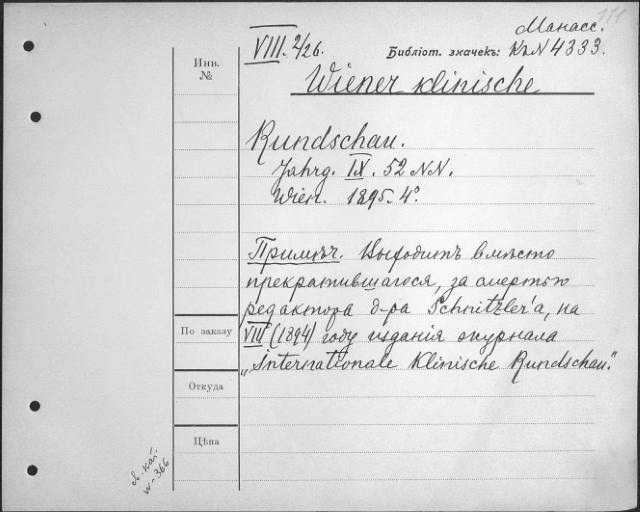 171
Манасс.
VIII. 2/26.
Библіот. значекъ: K2N 4333.
Инв.
№
Wiener klinische
Rundschau.
Jahrg. IX. 52 NN.
Wien. 1895. 4°.
Примѣч. Выходитъ вмѣсто
прекратившагося, за смертью
редактора д-ра Schnitzler'a, на
VIII (1894) году изданія журнала
„Internationale Klinische Rundschau."
По заказу
Откуда
Цѣна
кат.
w-366